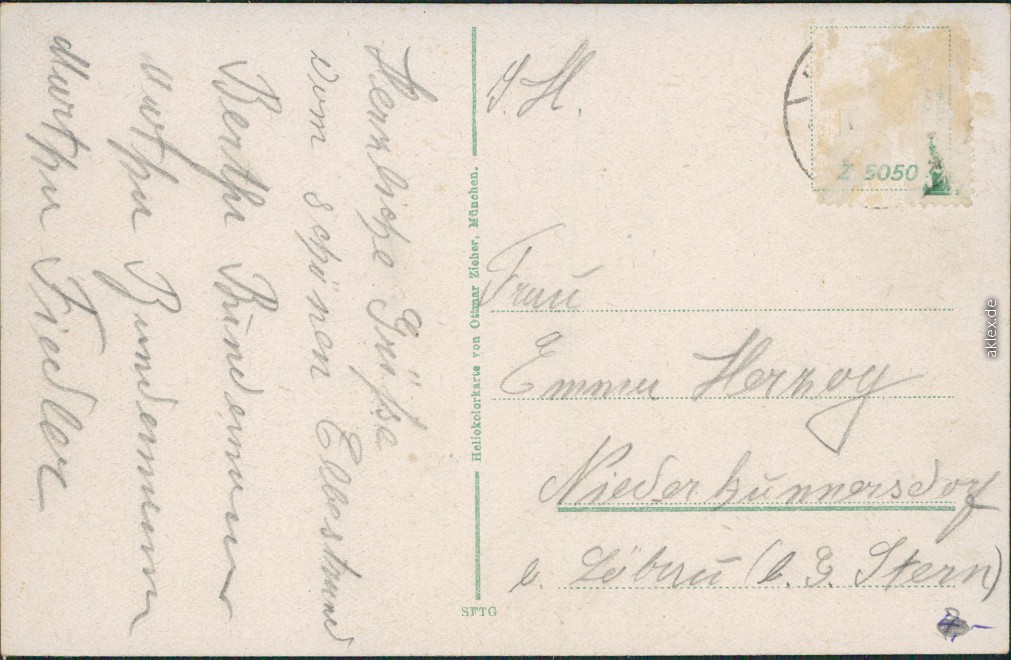 Herzliche Grüße
vom schönen Elbestrand
Bertha Bundermann
Martha Fiedler
Heliokolorkarte von Ottmar Zieher, München.
SFTG
Z 5050
Frau
Emma Herzog
Niederkunnersdorf
b. Löbau (b. G. Stern)
aklex.de